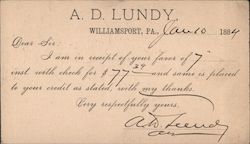 A. D. LUNDY,
WILLIAMSPORT, PA., Jan 10 1884
Dear Sir:
I am in receipt of your favor of 7"
inst. with check for $77 29 and same is placed
to your credit as stated, with my thanks.
Very respectfully yours,
A D Lundy